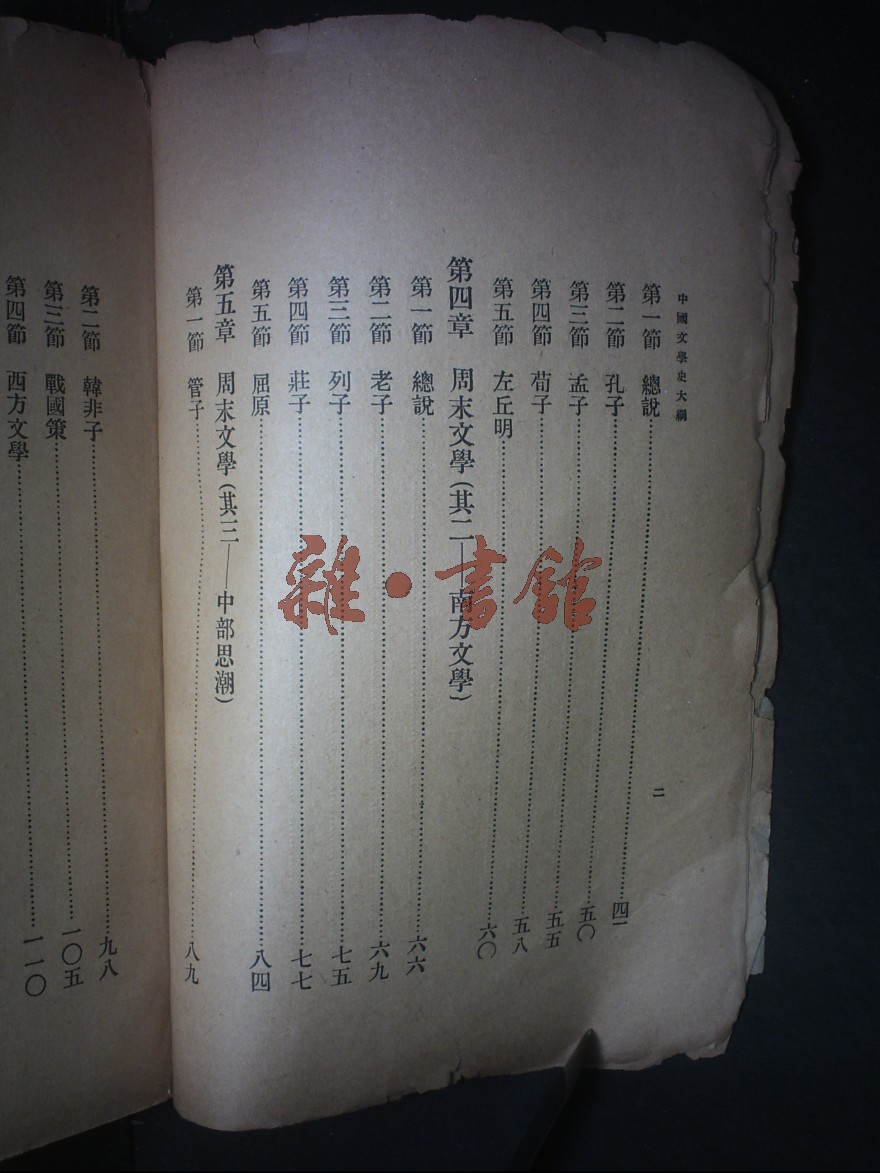 中國文學史大綱
二
第一節 總說……四一
第二節 孔子……五〇
第三節 孟子……五五
第四節 荀子……五八
第五節 左丘明……六〇
第四章 周末文學(其二——南方文學)
第一節 總說……六六
第二節 老子……六九
第三節 列子……七五
第四節 莊子……七七
第五節 屈原……八四
第五章 周末文學(其三——中部思潮)
第一節 管子……八九
第二節 韓非子……九八
第三節 戰國策……一〇五
第四節 西方文學……一一〇
雜·書館